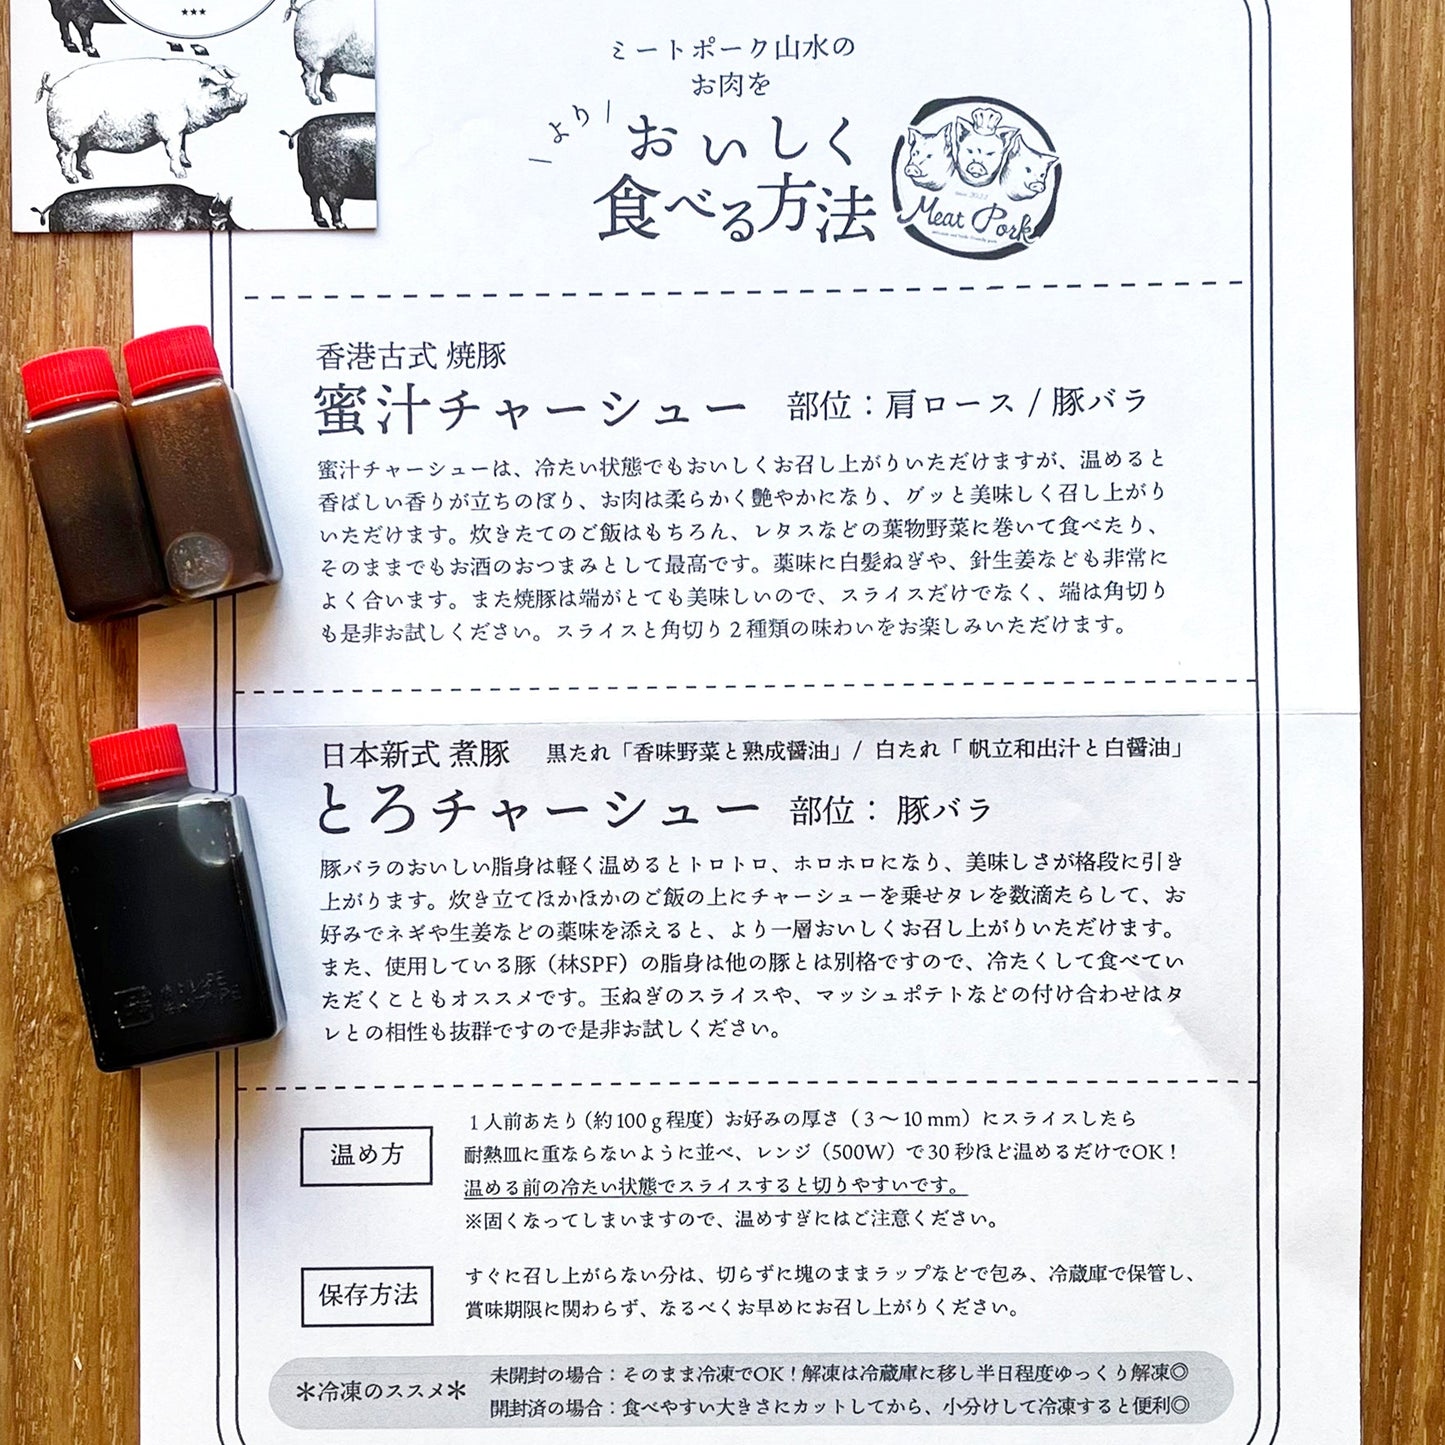 ミートポーク山水の
お肉を
より
おいしく
食べる方法
Meat Pork
香港古式 焼豚
蜜汁チャーシュー 部位：肩ロース / 豚バラ
蜜汁チャーシューは、冷たい状態でもおいしくお召し上がりいただけますが、温めると
香ばしい香りが立ちのぼり、お肉は柔らかく艶やかになり、グッと美味しく召し上がり
いただけます。炊きたてのご飯はもちろん、レタスなどの葉物野菜に巻いて食べたり、
そのままでもお酒のおつまみとして最高です。薬味に白髪ねぎや、針生姜なども非常に
よく合います。また焼豚は端がとても美味しいので、スライスだけでなく、端は角切り
も是非お試しください。スライスと角切り２種類の味わいをお楽しみいただけます。
日本新式 煮豚 黒たれ「香味野菜と熟成醤油」/ 白たれ「 帆立和出汁と白醤油」
とろチャーシュー 部位： 豚バラ
豚バラのおいしい脂身は軽く温めるとトロトロ、ホロホロになり、美味しさが格段に引き
上がります。炊き立てほかほかのご飯の上にチャーシューを乗せタレを数滴たらして、お
好みでネギや生姜などの薬味を添えると、より一層おいしくお召し上がりいただけます。
また、使用している豚（林SPF）の脂身は他の豚とは別格ですので、冷たくして食べてい
ただくこともオススメです。玉ねぎのスライスや、マッシュポテトなどの付け合わせはタ
レとの相性も抜群ですので是非お試しください。
温め方
１人前あたり（約100ｇ程度）お好みの厚さ（３〜10 mm）にスライスしたら
耐熱皿に重ならないように並べ、レンジ（500W）で30 秒ほど温めるだけでOK！
温める前の冷たい状態でスライスすると切りやすいです。
※固くなってしまいますので、温めすぎにはご注意ください。
保存方法
すぐに召し上がらない分は、切らずに塊のままラップなどで包み、冷蔵庫で保管し、
賞味期限に関わらず、なるべくお早めにお召し上がりください。
＊冷凍のススメ＊
未開封の場合：そのまま冷凍でOK！解凍は冷蔵庫に移し半日程度ゆっくり解凍◎
開封済の場合：食べやすい大きさにカットしてから、小分けして冷凍すると便利◎